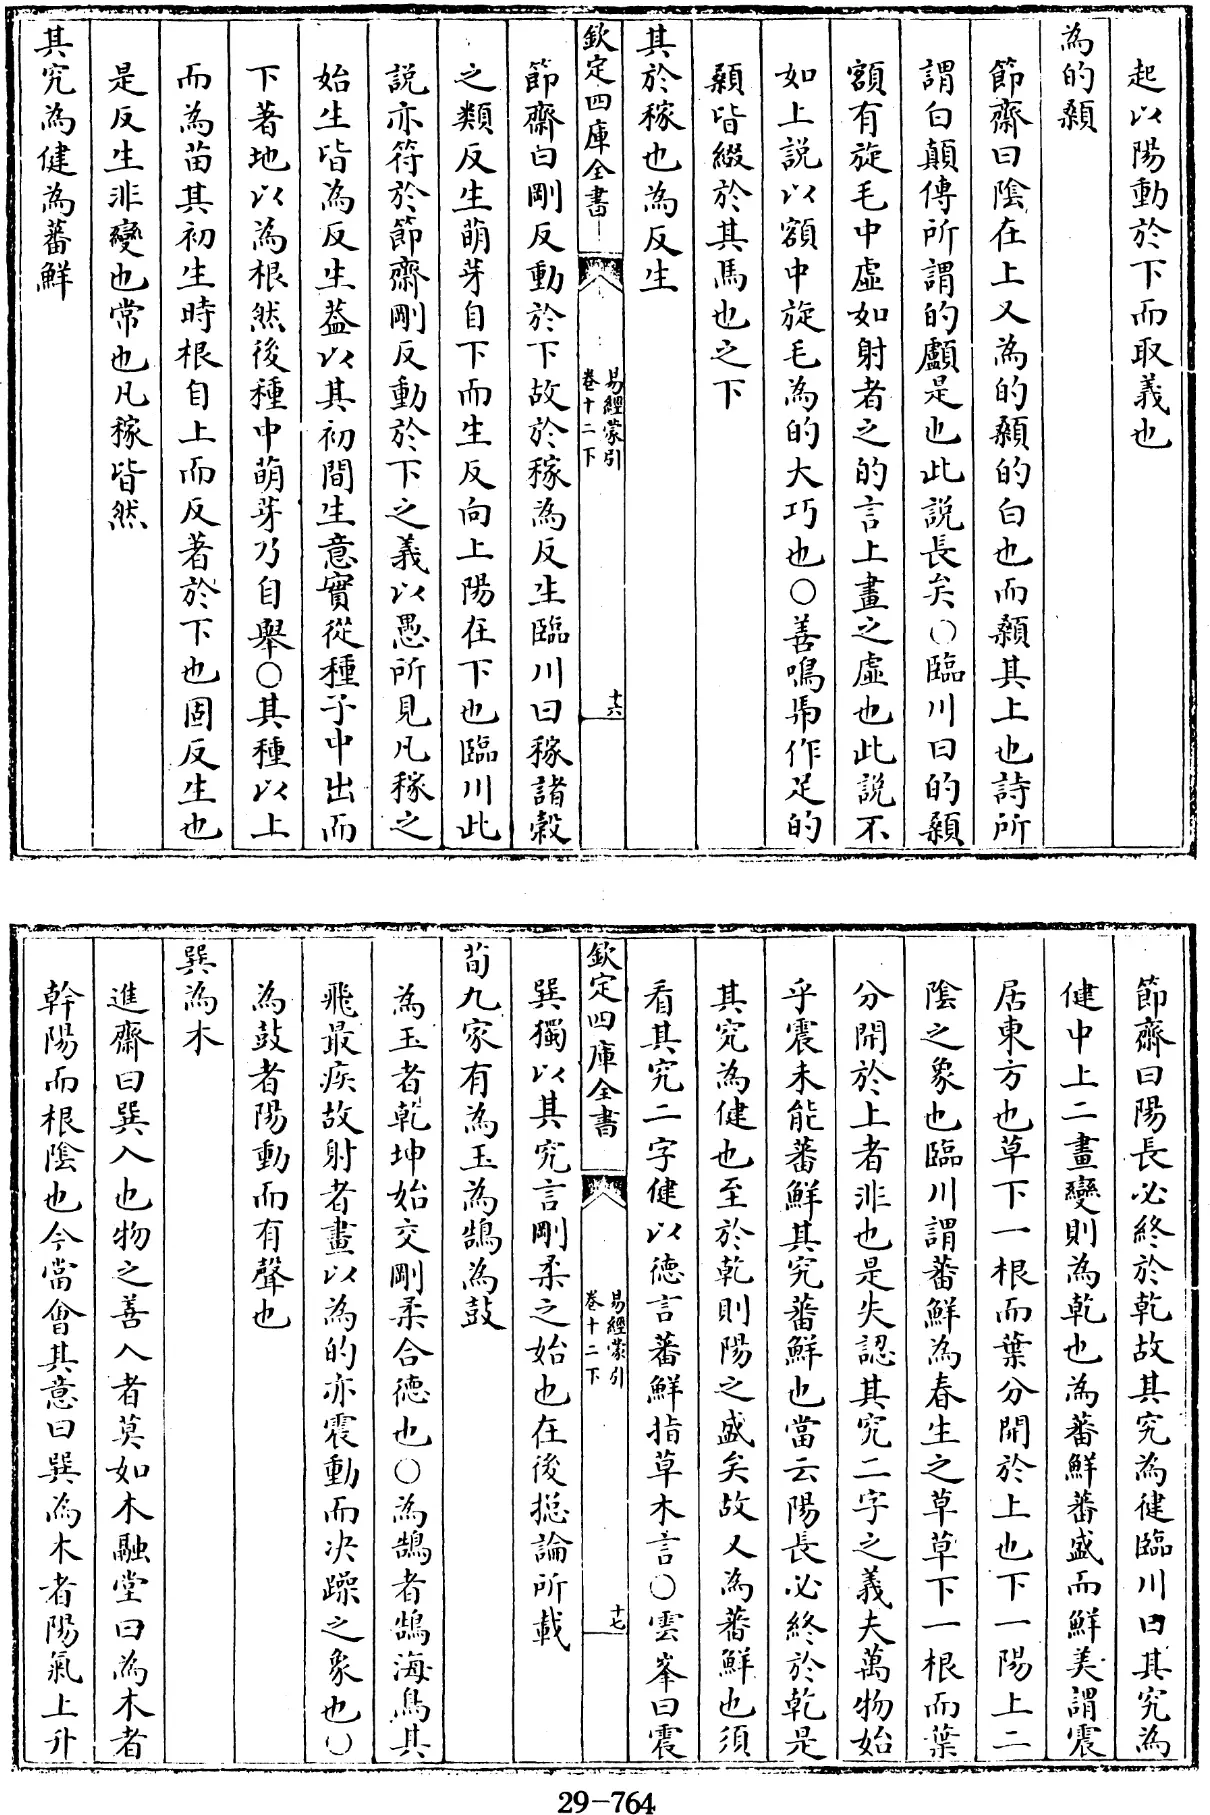 起以陽動於下而取義也
為的顙
節齋曰陰在上又為的顙的白也而顙其上也詩所
謂白顛傳所謂的顱是也此説長矣○臨川曰的顙
額有旋毛中虛如射者之的言上畫之虛也此說不
如上説以額中旋毛為的大巧也○善鳴馵作足的
顙皆綴於其馬也之下
其於稼也為反生
欽定四庫全書
易經蒙引
卷十二下
十六
節齋白剛反動於下故於稼為反生臨川曰稼諸穀
之類反生萌芽自下而生反向上陽在下也臨川此
説亦符於節齋剛反動於下之義以愚所見凡稼之
始生皆為反生葢以其初間生意實從種子中出而
下著地以為根然後種中萌芽乃自舉○其種以上
而為苗其初生時根自上而反著於下也固反生也
是反生非變也常也凡稼皆然
其究為健為蕃鮮
節齋曰陽長必終於乾故其究為健臨川曰其究為
健中上二畫變則為乾也為蕃鮮蕃盛而鮮美謂震
居東方也草下一根而葉分開於上也下一陽上二
陰之象也臨川謂蕃鮮為春生之草草下一根而葉
分開於上者非也是失認其究二字之義夫萬物始
乎震未能蕃鮮其究蕃鮮也當云陽長必終於乾是
其究為健也至於乾則陽之盛矣故又為蕃鮮也須
看其究二字健以德言蕃鮮指草木言○雲峯曰震
欽定四庫全書
易經蒙引
卷十二下
十七
巽獨以其究言剛柔之始也在後摠論所載
荀九家有為玉為鵠為鼓
為玉者乾坤始交剛柔合德也○為鵠者鵠海鳥其
飛最疾故射者畫以為的亦震動而决躁之象也○
為鼓者陽動而有聲也
巽為木
進齋曰巽入也物之善入者莫如木融堂曰為木者
幹陽而根陰也今當會其意曰巽為木者陽氣上升
29-764